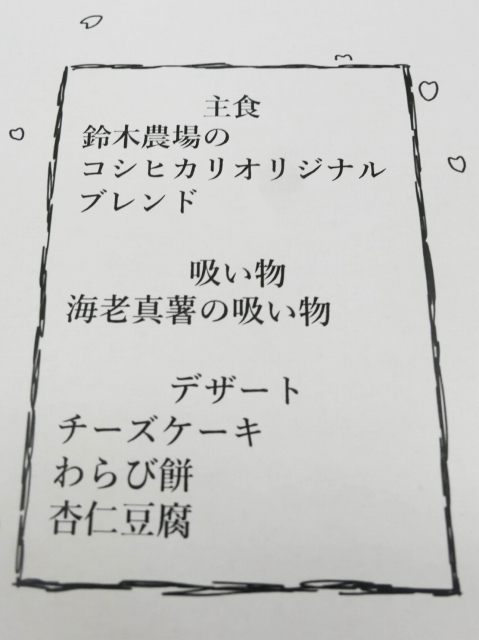 主食
鈴木農場の
コシヒカリオリジナル
ブレンド
吸い物
海老真薯の吸い物
デザート
チーズケーキ
わらび餅
杏仁豆腐